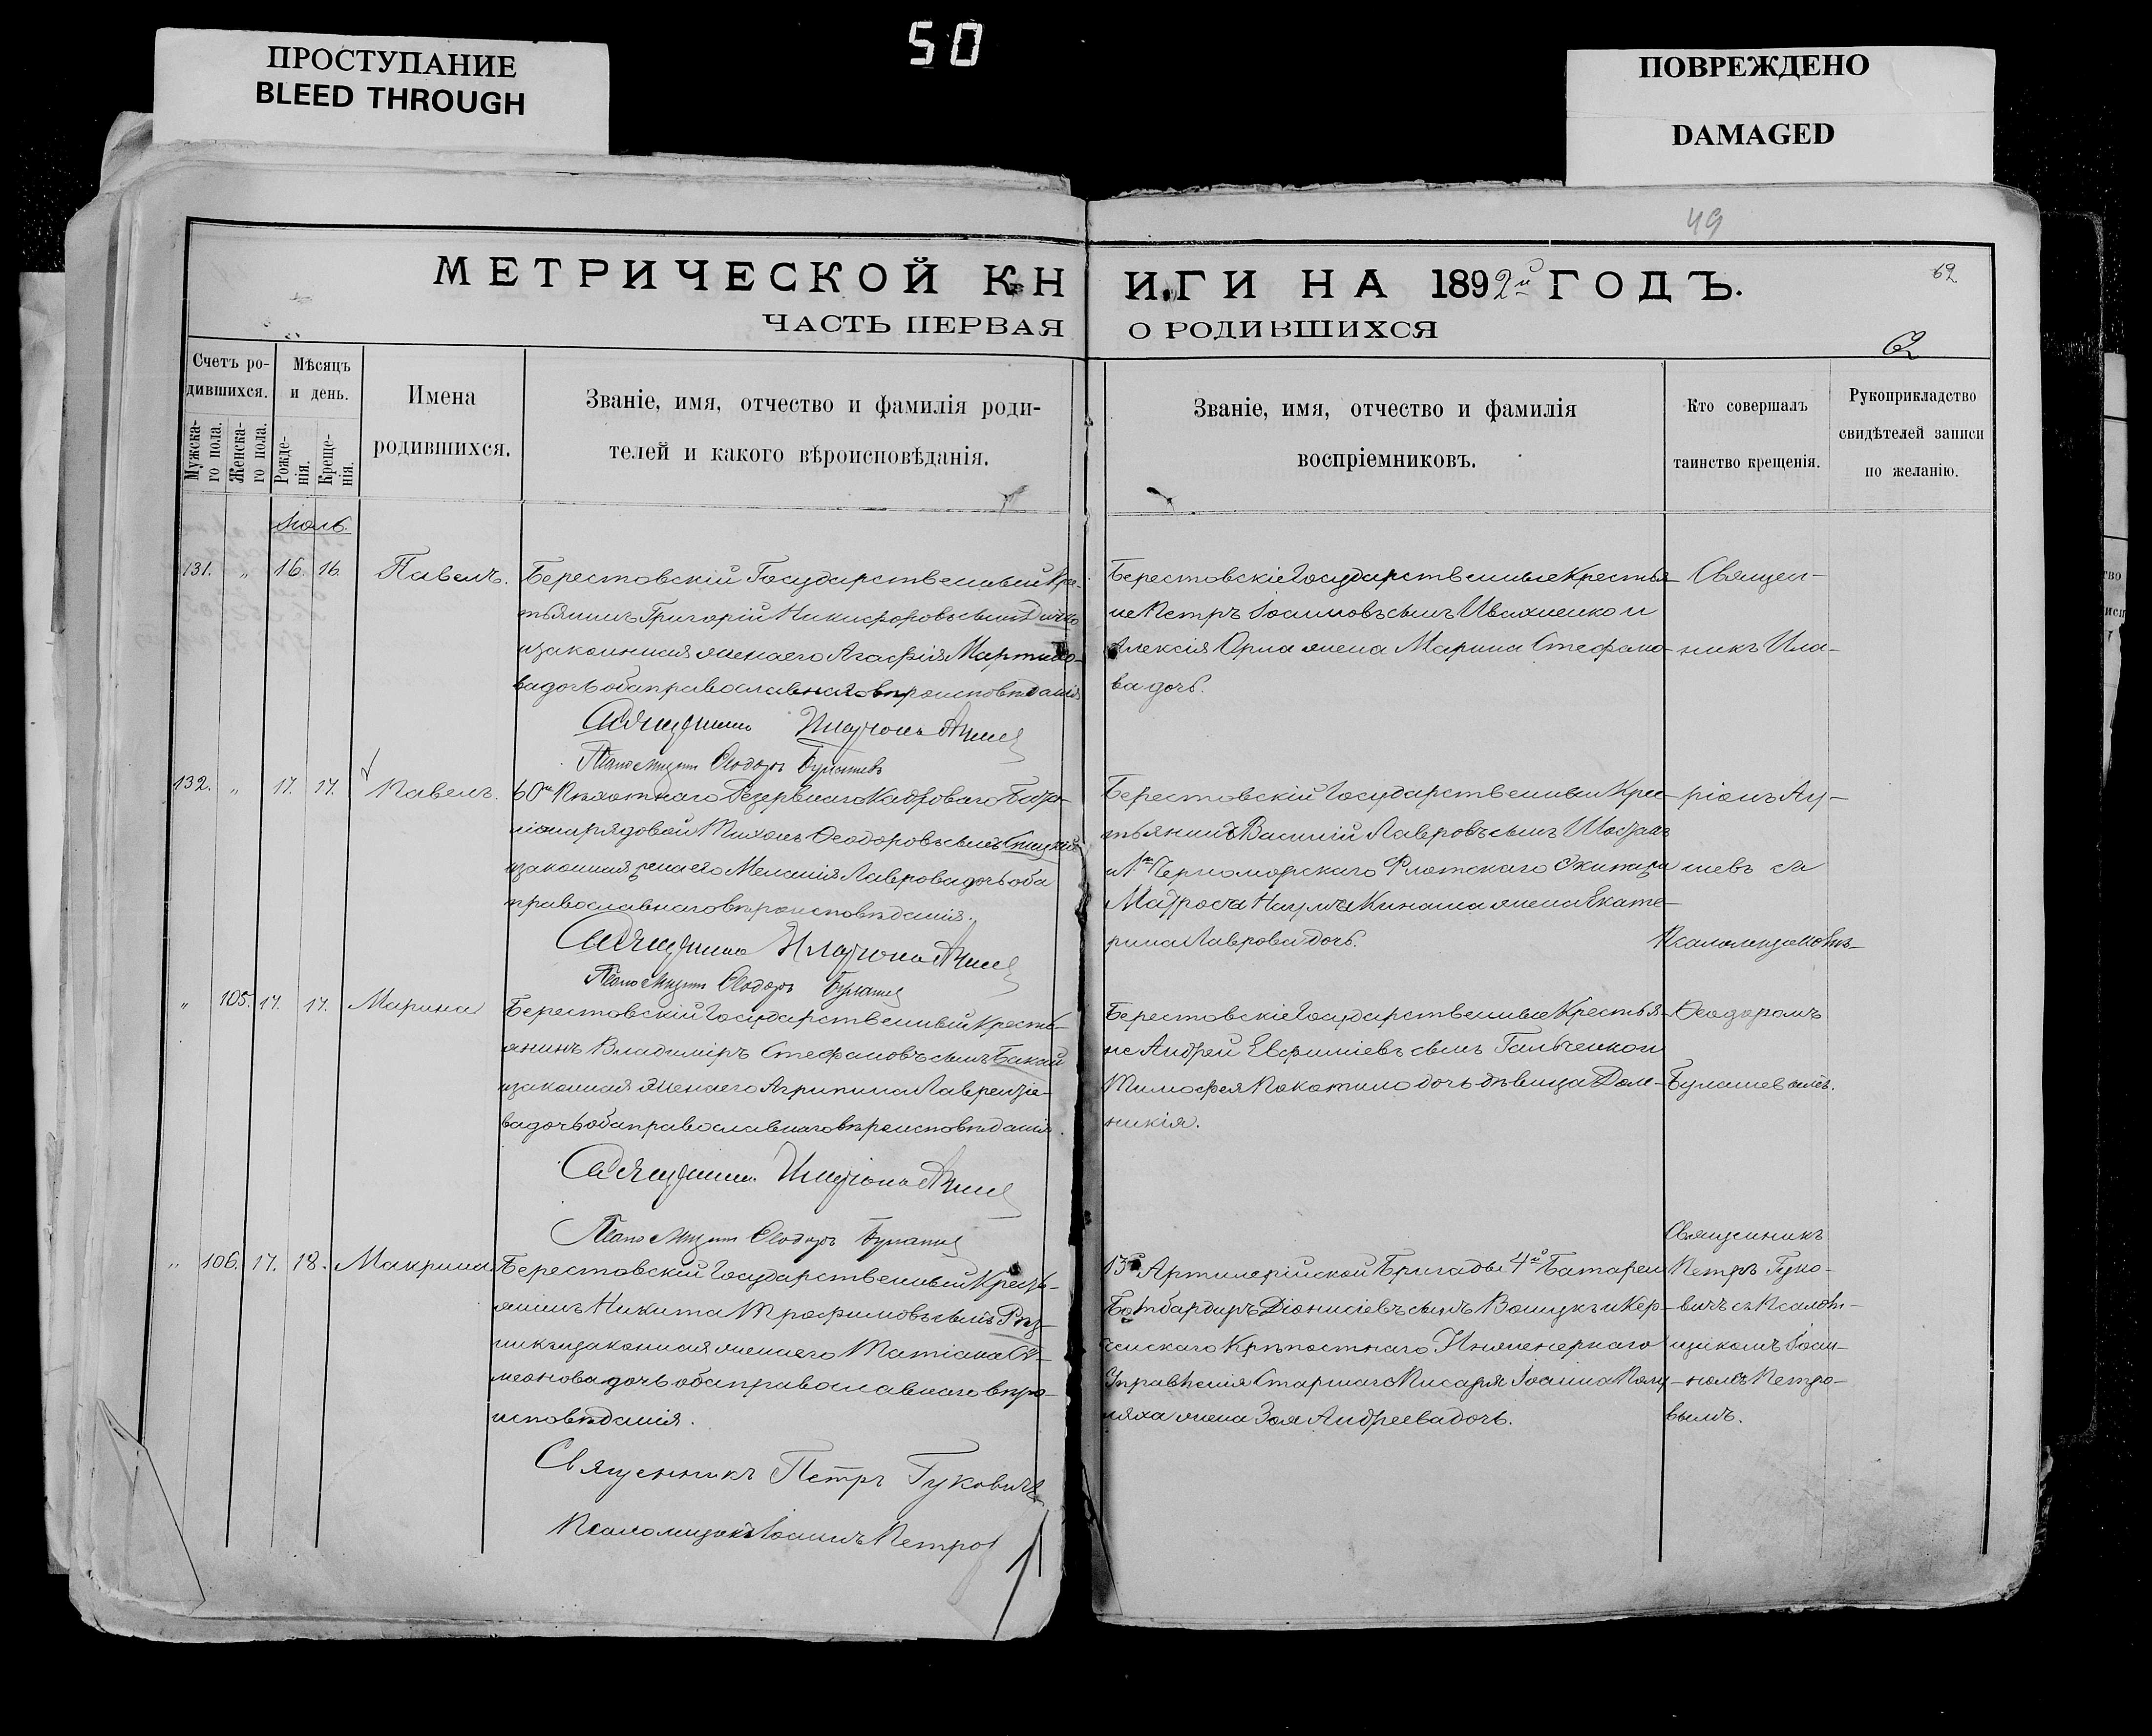 ПРОСТУПАНИЕ
BLEED THROUGH
50
ПОВРЕЖДЕНО
DAMAGED
49
МЕТРИЧЕСКОЙ КНИГИ НА 1892й ГОДЪ.
62
ЧАСТЬ ПЕРВАЯ О РОДИВШИХСЯ
Счетъ ро-
дившихся.
Мужска-
го пола.
Женска-
го пола.
Мѣсяцъ
и день.
Рожде-
нія.
Креще-
нія.
Имена
родившихся.
Званіе, имя, отчество и фамилія роди-
телей и какого вѣроисповѣданія.
Званіе, имя, отчество и фамилія
воспріемниковъ.
Кто совершалъ
таинство крещенія.
Рукоприкладство
свидѣтелей записи
по желанію.
Іюль.
131. " 16. 16. Павелъ.
Берестовскій Государственный Кре-
стьянинъ Григорій Никифоровъ сынъ Дичко
и законная жена его Агафія Мартино-
ва дочь оба православнаго вѣроисповѣданія
Священникъ Иларіонъ
Псаломщикъ Ѳеодоръ Булашевъ
Берестовскіе Государственные Крестья-
не Петръ Іоанновъ сынъ Ивахненко и
Алексія Орла жена Марина Стефано-
ва дочь.
132. " 17. 17. Павелъ.
60го Пѣхотнаго Резервнаго Кадроваго Бата-
ліона рядовой Тихонъ Ѳеодоровъ сынъ
и законная жена его Меланія Лаврова дочь оба
православнаго вѣроисповѣданія.
Священникъ Иларіонъ
Псаломщикъ Ѳеодоръ
Берестовскій Государственный Кре-
стьянинъ Василій Лавровъ сынъ
и 1го Черноморскаго Флотскаго Экипажа
Матроса Наума Кинаша жена Екате-
рина Лаврова дочь.
" 105. 17. 17. Марина
Берестовскій Государственный Кресть-
янинъ Владиміръ Стефановъ сынъ Бакай
и законная жена его Агрипина Лаврентіе-
ва дочь оба православнаго вѣроисповѣданія.
Священникъ Иларіонъ
Псаломщикъ Ѳеодоръ
Берестовскіе Государственные Крестья-
не Андрей Евфиміевъ сынъ Гальченко и
Тимофея Покотило дочь дѣвица Дом-
никія.
Священ-
никъ Ила-
ріонъ
съ
Псаломщикомъ
Ѳеодоромъ
Булашевымъ.
" 106. 17. 18. Макрина.
Берестовскій Государственный Кресть-
янинъ Никита Трофимовъ сынъ Рѣз-
никъ и законная жена его Татіана Си-
меонова дочь оба православнаго вѣро-
исповѣданія.
Священникъ Петръ Гуковичъ
Псаломщикъ Іоаннъ Петровъ
13й Артилерійской Бригады 4й Батареи
Бомбардиръ Діонисіевъ сынъ и Кер-
ченскаго Крѣпостнаго Инженернаго
Управленія Старшаго Писаря Іоанна
жена Зоя Андреева дочь.
Священникъ
Петръ Гуко-
вичъ съ Псалом-
щикомъ Іоан-
номъ Петро-
вымъ.